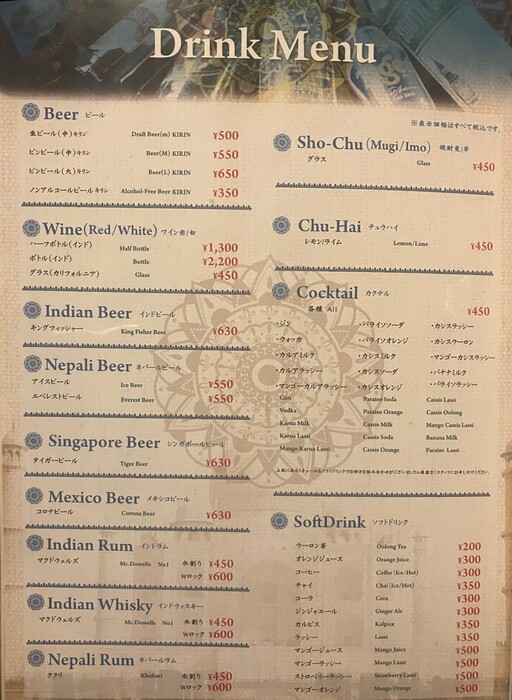 Drink Menu
Beer ビール
生ビール(中)キリン Draft Beer(m) KIRIN ¥500
ビンビール(中)キリン Beer(M) KIRIN ¥550
ビンビール(大)キリン Beer(L) KIRIN ¥650
ノンアルコールビールキリン Alcohol-Free Beer KIRIN ¥350
Wine(Red/White) ワイン赤/白
ハーフボトル(インド) Half Bottle ¥1,300
ボトル(インド) Bottle ¥2,200
グラス(カリフォルニア) Glass ¥450
Indian Beer インドビール
キングフィッシャー King Fisher Beer ¥630
Nepali Beer ネパールビール
アイスビール Ice Beer ¥550
エベレストビール Everest Beer ¥550
Singapore Beer シンガポールビール
タイガービール Tiger Beer ¥630
Mexico Beer メキシコビール
コロナビール Corona Beer ¥630
Indian Rum インドラム
マクドウェルズ Mc.Dowells No1 水割り ¥450
Wロック ¥600
Indian Whisky インドウィスキー
マクドウェルズ Mc.Dowells No1 水割り ¥450
Wロック ¥600
Nepali Rum ネパールラム
ククリ Khukuri 水割り ¥450
Wロック ¥600
※表示価格はすべて税込です。
Sho-Chu (Mugi/Imo) 焼酎麦/芋
グラス Glass ¥450
Chu-Hai チュウハイ
レモン/ライム Lemon/Lime ¥450
Cocktail カクテル
各種 All ¥450
・ジン ・パライソソーダ ・カシスラッシー
・ウォッカ ・パライソオレンジ ・カシスウーロン
・カルアミルク ・カシスミルク ・マンゴーカシスラッシー
・カルアラッシー ・カシスソーダ ・バナナミルク
・マンゴーカルアラッシー ・カシスオレンジ ・パライソラッシー
Gin Paraiso Soda Cassis Lassi
Vodka Paraiso Orange Cassis Oolong
Karua Milk Cassis Milk Mango Cassis Lassi
Karua Lassi Cassis Soda Banana Milk
Mango Karua Lassi Cassis Orange Paraiso Lassi
SoftDrink ソフトドリンク
ウーロン茶 Oolong Tea ¥200
オレンジジュース Orange Juice ¥300
コーヒー Coffee (Ice/Hot) ¥300
チャイ Chai (Ice/Hot) ¥350
コーラ Cora ¥300
ジンジャエール Ginger Ale ¥300
カルピス Kalpice ¥350
ラッシー Lassi ¥350
マンゴージュース Mango Juice ¥500
マンゴーラッシー Mango Lassi ¥500
ストロベリーラッシー Strawberry Lassi ¥500
マンゴーオレンジ Mango Orange ¥500